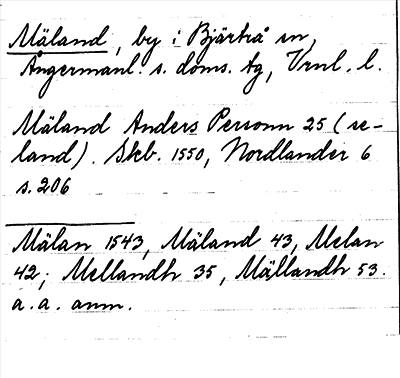 Mäland, by i Bjärtrå sn,
Ångermanl. s. doms. tg, Vrnl. l.
Mäland Anders Personn 25 (se-
land). Skb. 1550, Nordlander 6
s. 206
Mälan 1543, Mäland 43, Melan
42; Mellandh 35, Mällandh 53.
a. a. anm.